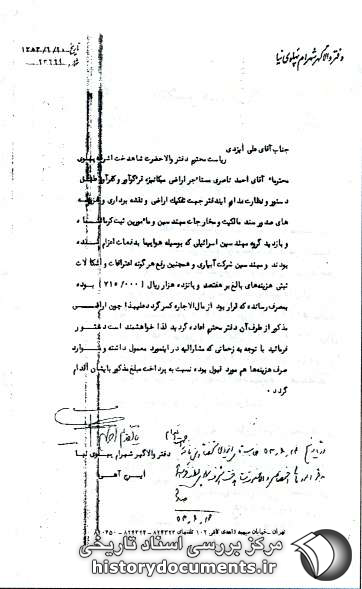 دفتر والاگهر شهرام پهلوی نیا
تاریخ
جناب آقای علی ایزدی
ریاست محترم دفتر والاحضرت شاهدخت اشرف پهلوی
محترما" آقای احمد ناصری مستاجر اراضی مکانیزه
دستور و نظارت مدام ایندفتر جهت تفکیک اراضی و نقشه برداری و هزینه
های صدور سند مالکیت و مخارجات مهندسین و مامورین ثبت کرمانشاه
و بازدید گروه مهندسین اسرائیلی که بوسیله هواپیما بدفعات اعزام شده
بودند و مهندسین شرکت آبیاری و همچنین رفع هرگونه اعتراضات و اشکالات
ثبتی هزینه‌های بالغ بر هفتصد و پانزده هزار ریال (۷۱۵/۰۰۰) بوده
بمصرف رسانده که قرار بود از مال الاجاره کسر گردد علیهذا چون اراضی
مذکور از طرف آن دفتر محترم اعاده گردید لذا خواهشمند است دستور
فرمائید با توجه به زحماتی که مشارالیه در اینمورد معمول داشته و موارد
صرف هزینه‌ها هم مورد قبول بوده نسبت به پرداخت مبلغ مذکور بایشان اقدام
گردد
دفتر والاگهر شهرام پهلوی نیا
تهران - خیابان سپهبد زاهدی کاخی ۱۰۲ تلفنهای
مرکز بررسی اسناد تاریخی
historydocuments.ir